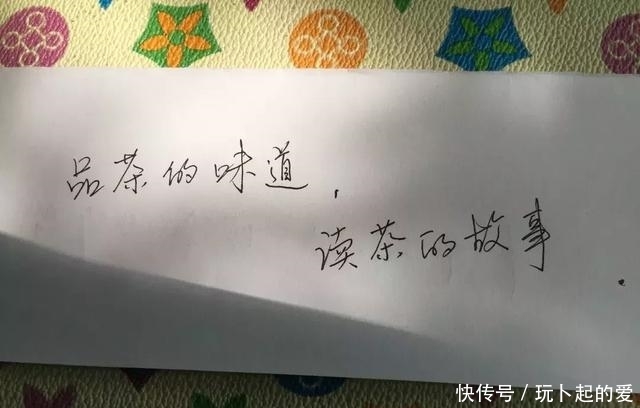 品茶的味道，
读茶的故事.
快传号／玩卜起的爱